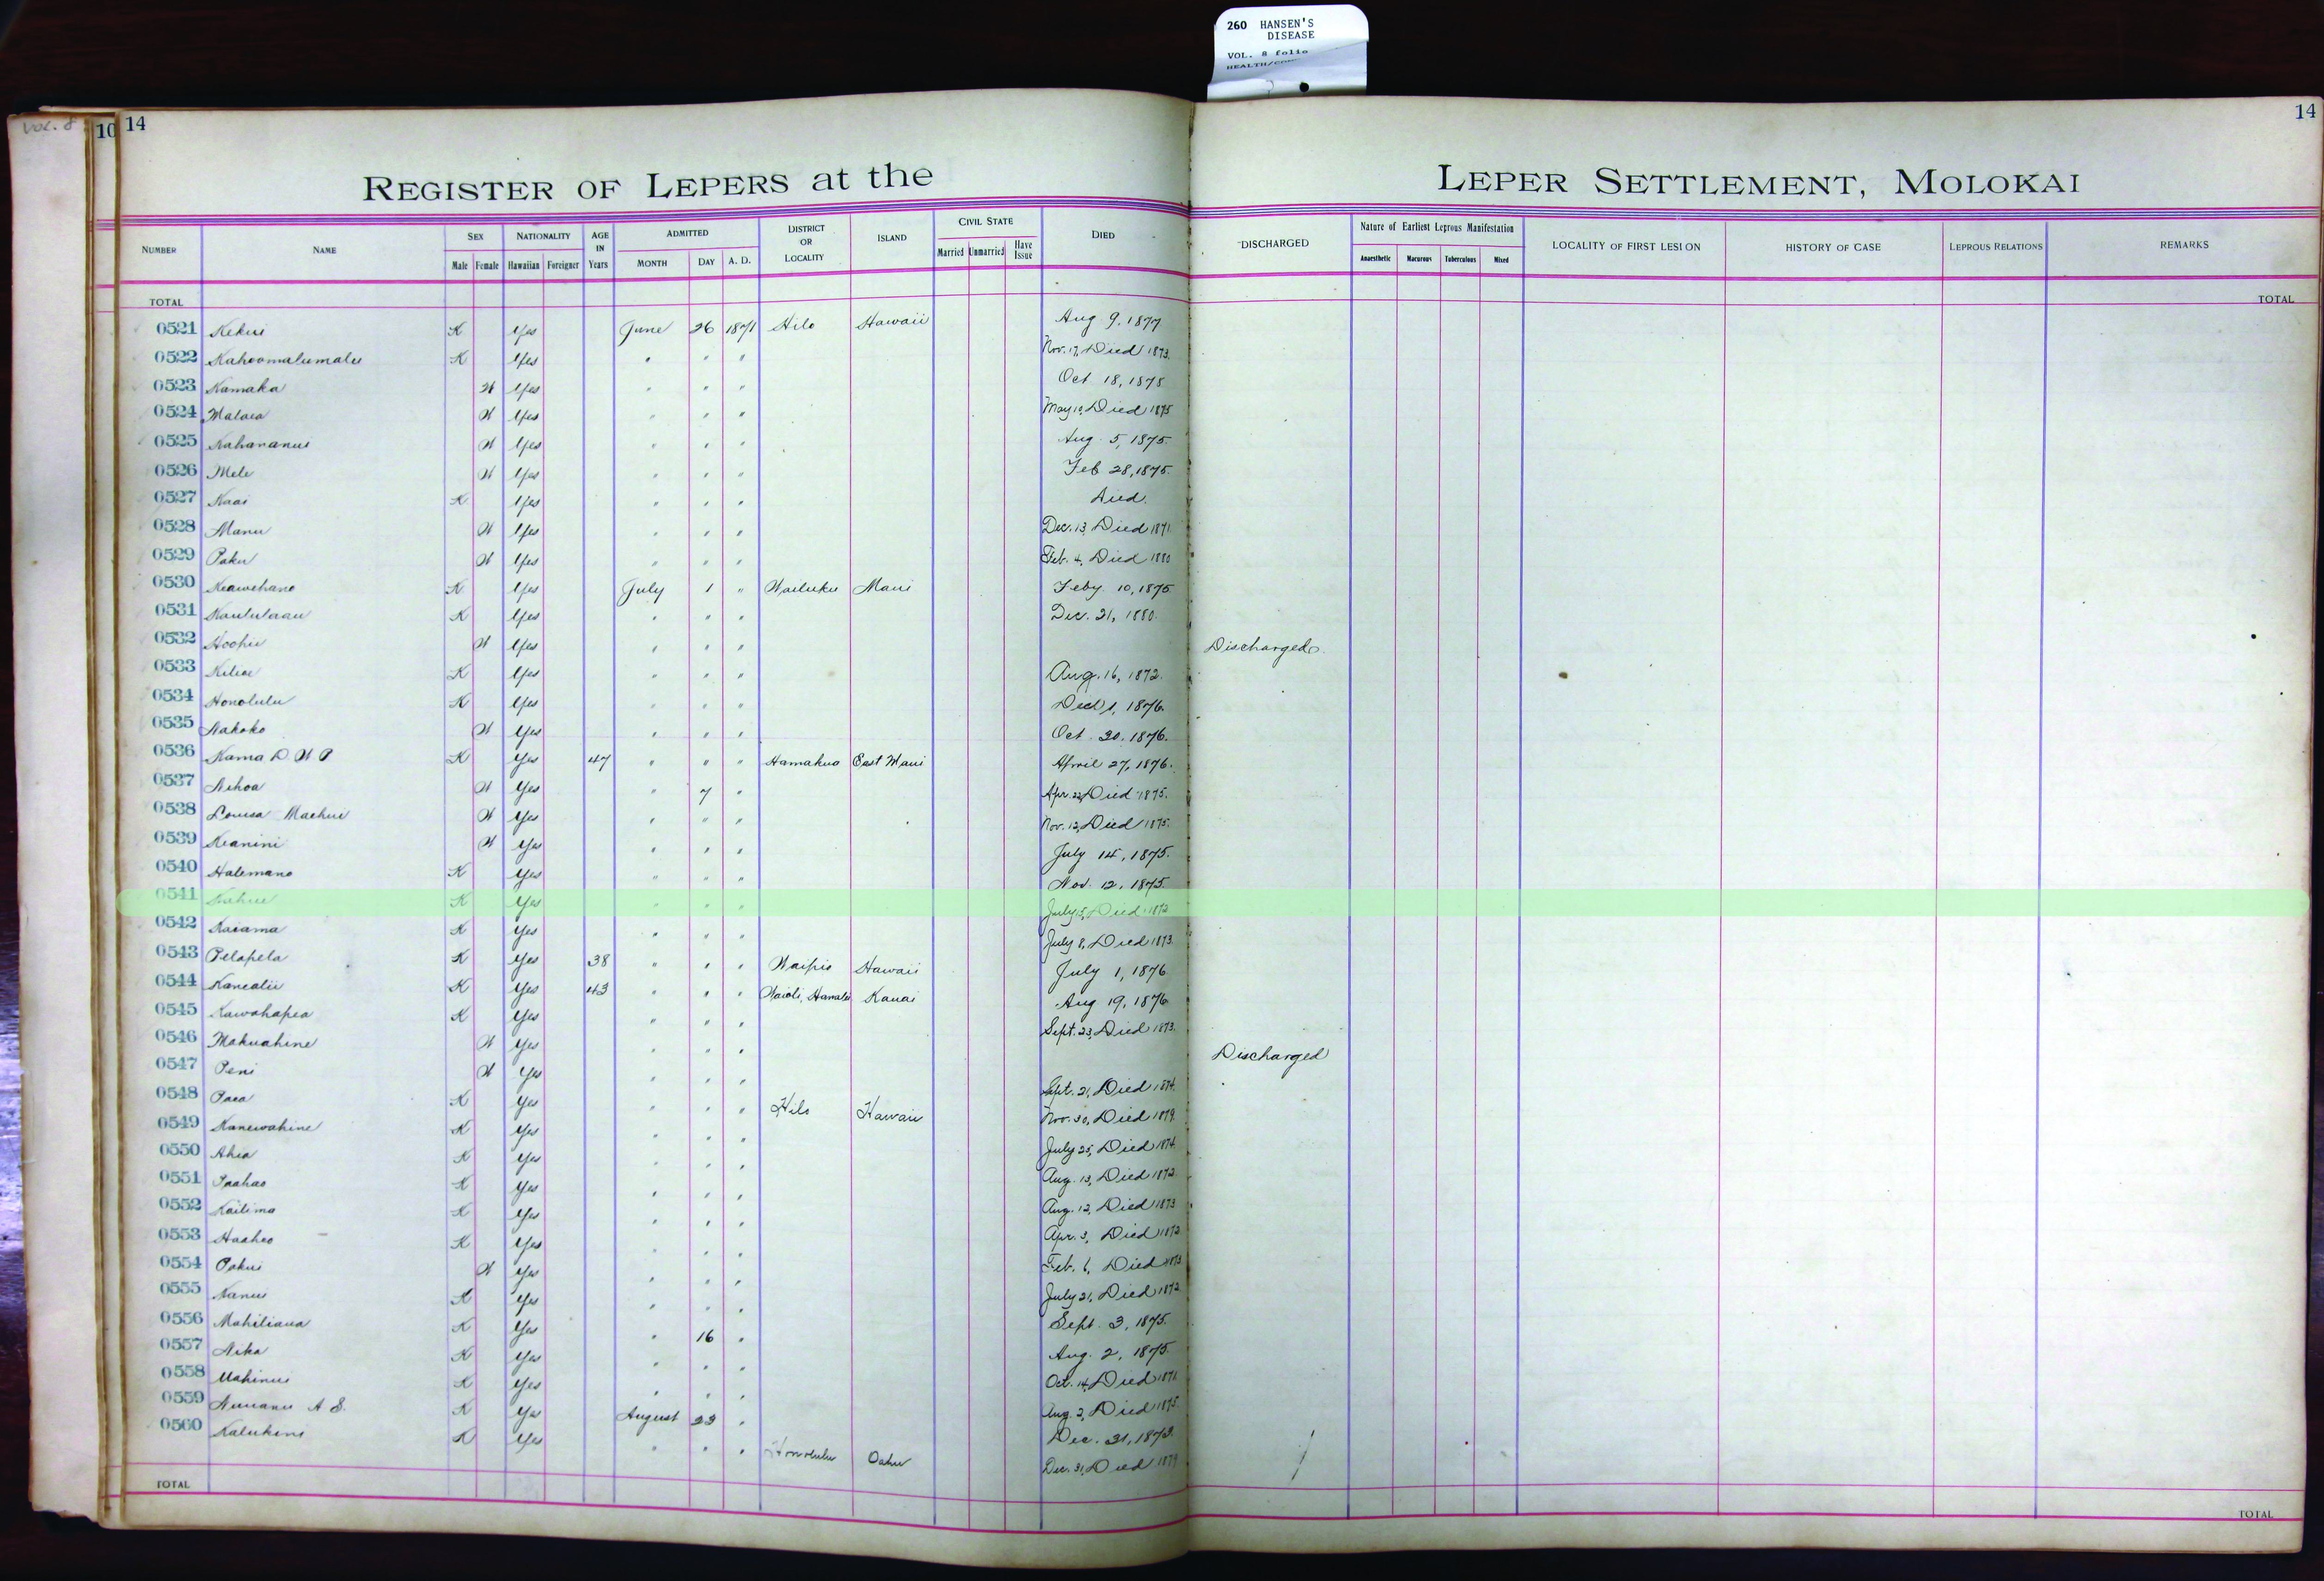 260 HANSEN'S
DISEASE
VOL. 8 folio
VOL. 8
10 14
14
REGISTER OF LEPERS at the LEPER SETTLEMENT, MOLOKAI
NUMBER NAME SEX NATIONALITY AGE IN Years ADMITTED DISTRICT OR LOCALITY ISLAND CIVIL STATE DIED DISCHARGED Nature of Earliest Leprous Manifestation LOCALITY OF FIRST LESION HISTORY OF CASE LEPROUS RELATIONS REMARKS
Male Female Hawaiian Foreigner MONTH DAY A. D. Married Unmarried Have Issue Anaesthetic Macurous Tuberculous Mixed
TOTAL TOTAL
0521 Kekui K Yes June 26 1871 Hilo Hawaii Aug 9, 1877
0522 Kahoomalumalu K Yes " " " Nov. 17, Died 1873.
0523 Kamaka W Yes " " " Oct 18, 1875
0524 Malaea W Yes " " " May 10, Died 1875
0525 Kahananui W Yes " " " Aug. 5, 1875.
0526 Mele W Yes " " " Feb 28, 1875.
0527 Kaai K Yes " " " Died.
0528 Manu W Yes " " " Dec. 13, Died 1871
0529 Paku W Yes " " " Feb. 4, Died 1880
0530 Keawehano K Yes July 1 " Wailuku Maui Feby 10, 1875
0531 Kaululaau K Yes " " " Dec. 21, 1880.
0532 Hoohii W Yes " " " Discharged.
0533 Kiliae K Yes " " " Aug. 16, 1872.
0534 Honolulu K Yes " " " Dec 1, 1876.
0535 Nakoko W Yes " " " Oct. 20, 1876.
0536 Kama D. W P K Yes 47 " " " Hamakua East Maui April 27, 1876.
0537 Nihoa W Yes " 7 " Apr. 22, Died 1875.
0538 Louisa Maehui W Yes " " " Nov. 12, Died 1875.
0539 Keanini W Yes " " " July 14, 1875.
0540 Halemano K Yes " " " Nov. 12, 1875.
0541 Kahue K Yes " " " July 15, Died 1872
0542 Kaiama K Yes " " " July 8, Died 1873.
0543 Pelapela K Yes 38 " " " Waipio Hawaii July 1, 1876
0544 Kanealii K Yes 43 " " " Waioli, Hanalei Kauai Aug 19, 1876
0545 Kawahapea K Yes " " " Sept. 23, Died 1873.
0546 Makuahine W Yes " " " Discharged
0547 Peni W Yes " " " Sept. 21, Died 1874.
0548 Paea K Yes " " " Hilo Hawaii Nov. 30, Died 1879.
0549 Kanewahine K Yes " " " July 25, Died 1874.
0550 Ahia K Yes " " " Aug. 13, Died 1872.
0551 Paahao K Yes " " " Aug. 12, Died 1873
0552 Kailima K Yes " " " Apr. 3, Died 1872
0553 Haaheo K Yes " " " Feb. 6, Died 1873
0554 Pakui W Yes " " " July 21, Died 1872
0555 Nanui K Yes " " " Sept. 3, 1875.
0556 Mahiliaua K Yes " 16 " Aug. 2, 1875.
0557 Nika K Yes " " " Oct. 14, Died 1871.
0558 Mahinui K Yes " " " Aug. 2, Died 1875.
0559 Nuuanu A S. K Yes August 23 " Dec. 31, 1873.
0560 Kalukini K Yes " " " Honolulu Oahu Dec. 31, Died 1879
TOTAL TOTAL